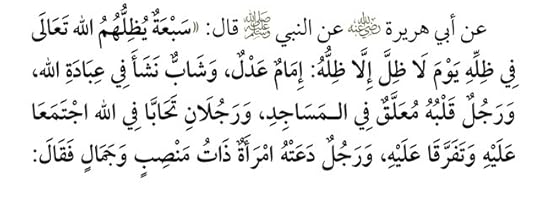 عن أبي هريرة ﵁ عن النبي ﷺ قال: «سَبْعَةٌ يُظِلُّهُمُ الله تَعَالَى
فِي ظِلِّهِ يَوْمَ لَا ظِلَّ إِلَّا ظِلُّهُ: إِمَامٌ عَدْلٌ، وَشَابٌّ نَشَأَ فِي عِبَادَةِ الله،
وَرَجُلٌ قَلْبُهُ مُعَلَّقٌ فِي الـمَسَاجِدِ، وَرَجُلَانِ تَحَابَّا فِي الله اجْتَمَعَا
عَلَيْهِ وَتَفَرَّقَا عَلَيْهِ، وَرَجُلٌ دَعَتْهُ امْرَأَةٌ ذَاتُ مَنْصِبٍ وَجَمَالٍ فَقَالَ: